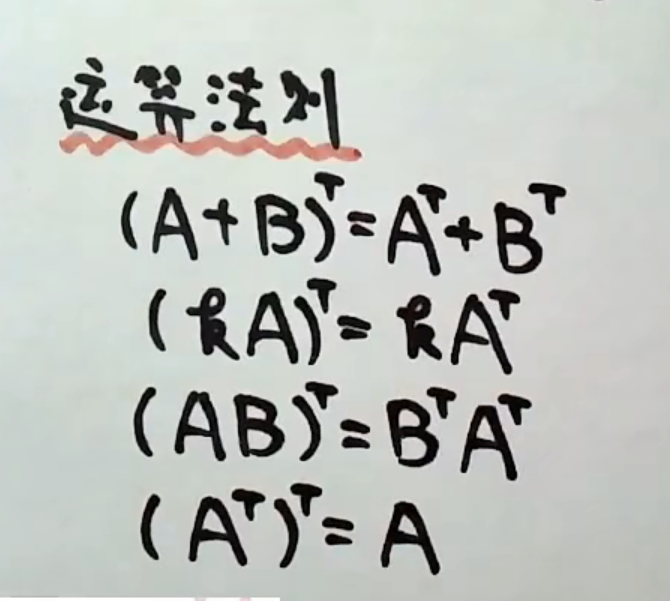 运算法则
(A+B)ᵀ=Aᵀ+Bᵀ
(kA)ᵀ=kAᵀ
(AB)ᵀ=BᵀAᵀ
(Aᵀ)ᵀ=A